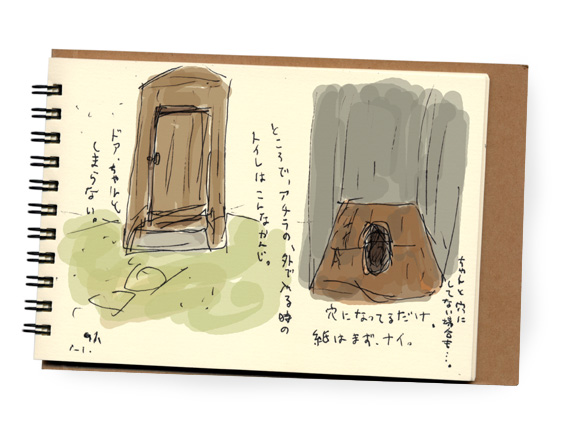 ところで、アチラの、外で入る時の
トイレはこんなかんじ。
ドア、ちゃんと
しまらない。
穴になってるだけ。
紙はまず、ナイ。
ちゃんと穴に
してない場合も…。